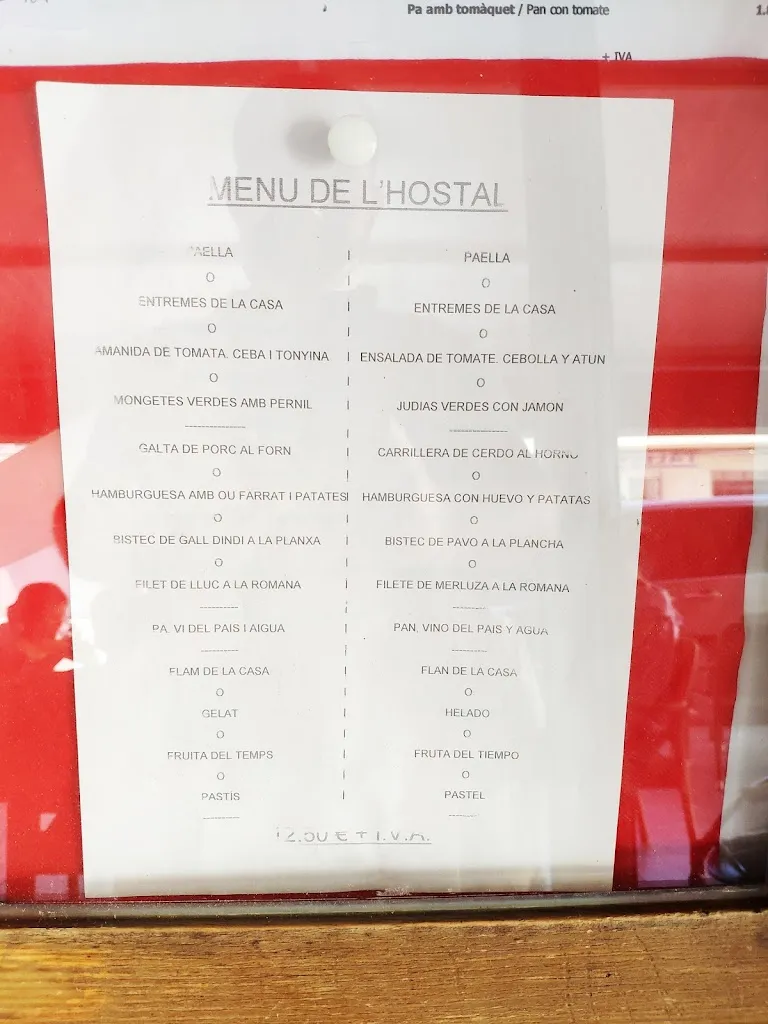 Pa amb tomàquet / Pan con tomate
+ IVA
MENU DE L'HOSTAL
PAELLA
O
ENTREMES DE LA CASA
O
AMANIDA DE TOMATA. CEBA I TONYINA
O
MONGETES VERDES AMB PERNIL
---------------
GALTA DE PORC AL FORN
O
HAMBURGUESA AMB OU FARRAT I PATATES
O
BISTEC DE GALL DINDI A LA PLANXA
O
FILET DE LLUC A LA ROMANA
----------
PA. VI DEL PAIS I AIGUA
----------
FLAM DE LA CASA
O
GELAT
O
FRUITA DEL TEMPS
O
PASTÍS
----------
PAELLA
O
ENTREMES DE LA CASA
O
ENSALADA DE TOMATE. CEBOLLA Y ATUN
O
JUDIAS VERDES CON JAMON
---------------
CARRILLERA DE CERDO AL HORNO
O
HAMBURGUESA CON HUEVO Y PATATAS
O
BISTEC DE PAVO A LA PLANCHA
O
FILETE DE MERLUZA A LA ROMANA
---------
PAN. VINO DEL PAIS Y AGUA
---------
FLAN DE LA CASA
O
HELADO
O
FRUTA DEL TIEMPO
O
PASTEL
-------
12.50 € + I.V.A.